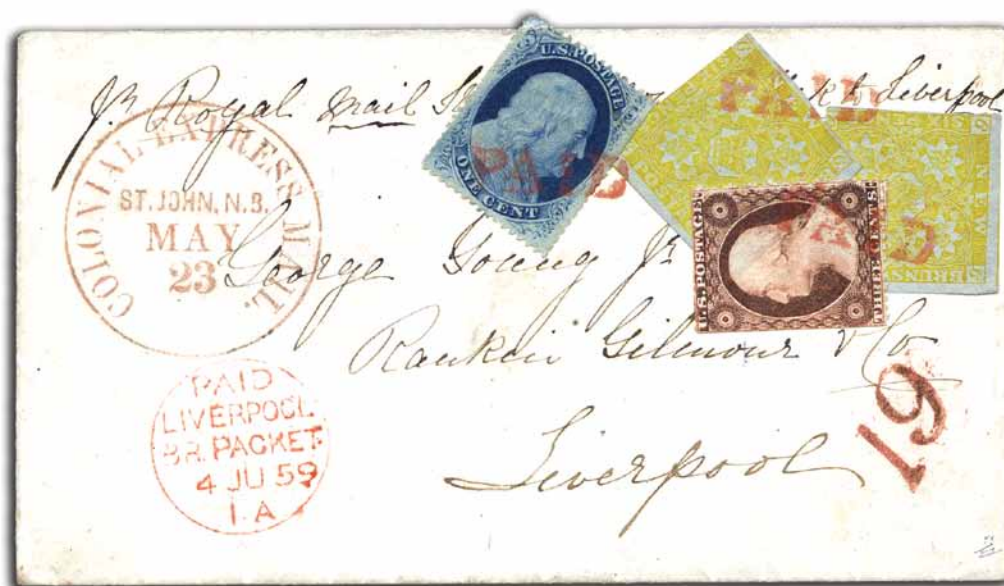 pr. Royal Mail St k to Liverpool
COLONIAL EXPRESS MAIL.
ST. JOHN, N.B.
MAY
23
U.S. POSTAGE
ONE CENT
PAID
PAID
PAID
U.S. POSTAGE
THREE CENTS
BRUNSW
George Young Jr
Rankin Gilmour & Co
Liverpool
19
PAID
LIVERPOOL
BR. PACKET
4 JU 59
1.A